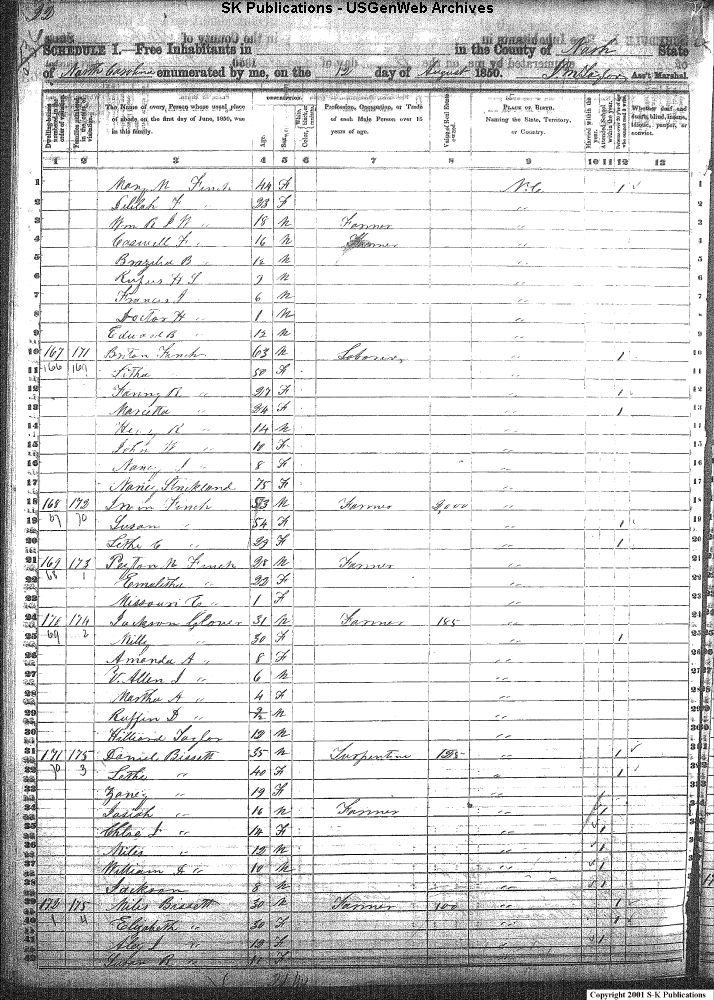 SK Publications - USGenWeb Archives
22
SCHEDULE I.—Free Inhabitants in in the County of Nash State
of North Carolina enumerated by me, on the 12 day of August 1850. Ass't Marshal
DESCRIPTION.
The Name of every Person whose usual place of abode on the first day of June, 1850, was in this family.
Age. Sex.
Profession, Occupation, or Trade of each Male Person over 15 years of age.
Value of Real Estate owned.
PLACE OF BIRTH. Naming the State, Territory, or Country.
Married within the year.
Whether deaf and dumb, blind, insane, idiotic, pauper, or convict.
1 2 3 4 5 6 7 8 9 10 11 12 13
1 Mary M Finch 44 F N.C. 1
2 Delilah F " 23 F "
3 Wm R " 18 M Farmer "
4 Caswell F " 16 M Farmer "
5 B " 12 M "
6 Rufus H 9 M "
7 Francis J 6 M "
8 Doctor H " 1 M "
9 Edward B " 12 M "
10 167 171 Briton Finch 63 M Laborer " 1
11 166 Sitha 50 F "
12 Fanny R " 27 F " 1
13 Marietta " 24 F " 1
14 Henry R " 14 M "
15 John W " 10 F "
16 Nancy J " 8 F "
17 Nancy Strickland 75 F "
18 168 172 Irvin Finch 53 M Farmer 2,000 "
19 67 70 Susan " 54 F " 1
20 Lethe C " 29 F " 1
21 169 173 Peyton N Finch 28 M Farmer "
22 68 1 " 22 F "
23 Missouri C " 1 F "
24 170 174 Jackson Glover 31 M Farmer 185 "
25 69 2 Milly " 30 F " 1
26 Amanda A " 8 F "
27 V. Allen J " 6 M "
28 Martha A " 4 F "
29 Ruffin D " M "
30 Hilliard Taylor 12 M "
31 171 175 Daniel Bissett 35 M Turpentine 125 " 1
32 70 3 Lethe " 40 F " 1
33 Zaney " 19 F "
34 Josiah " 16 M Farmer " 1
35 Chloe J " 14 F " 1
36 Miles " 12 M " 1
37 William D " 10 M " 1
38 Jackson 8 M " 1
39 172 175 Miles Bissett 30 M Farmer 100 " 1
40 1 4 Elizabeth " 30 F " 1
41 Aley J " 12 F " 1
42 Susan R " F
Copyright 2001 S-K Publications